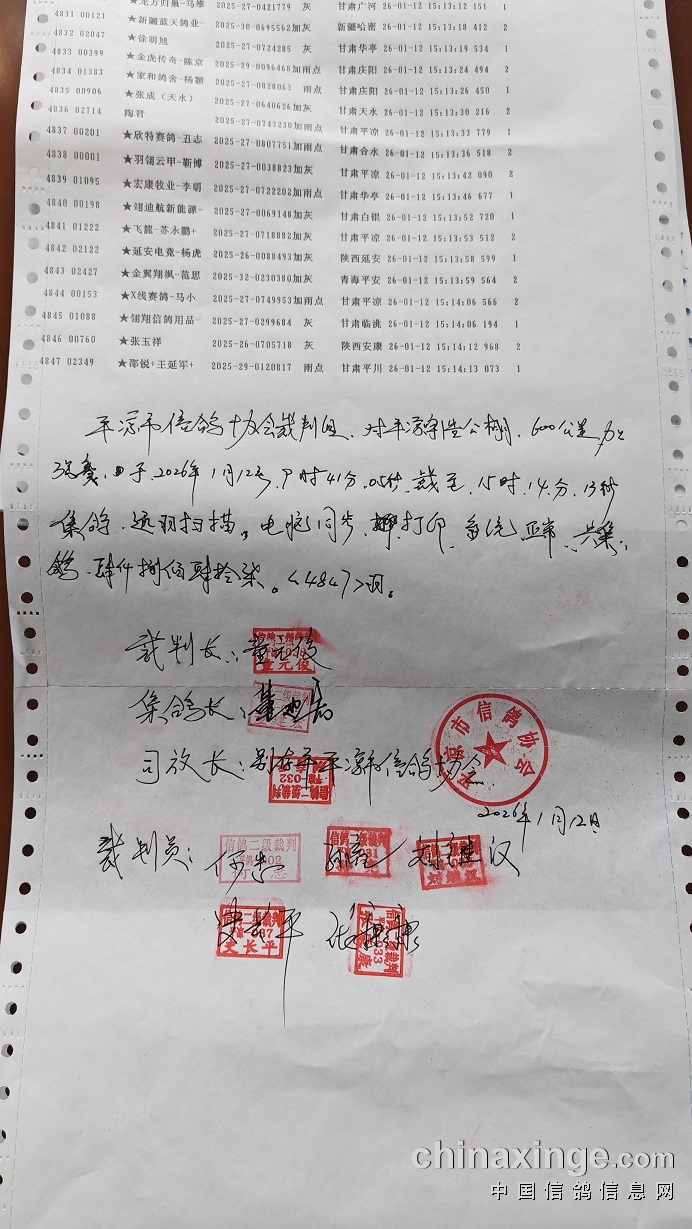 4831 00121 ★龙方归巢-马维 2025-27-0421779 灰 甘肃广河 26-01-12 15:13:12 151 1
4832 02047 ★新疆蓝天鸽业- 2025-30-0695562 加灰 新疆哈密 26-01-12 15:13:18 412 2
4833 00399 ★徐萌旭 2025-27-0724285 灰 甘肃华亭 26-01-12 15:13:19 534 1
4834 01383 ★金虎传奇-陈京 2025-29-0096468 加雨点 甘肃庆阳 26-01-12 15:13:24 494 2
4835 00906 ★家和鸽舍-杨颖 2025-27-0828063 雨点 甘肃庆阳 26-01-12 15:13:26 450 1
4836 02714 ★张成（天水） 2025-27-0640626 加灰 甘肃天水 26-01-12 15:13:30 216 2
4837 00201 陶君 2025-27-0743230 加雨点 甘肃平凉 26-01-12 15:13:33 779 1
4838 00001 ★欣特赛鸽-丑志 2025-27-0807751 加雨点 甘肃合水 26-01-12 15:13:36 518 2
4839 01095 ★羽翎云甲-靳博 2025-27-0038823 加灰 甘肃平凉 26-01-12 15:13:42 090 2
4840 00198 ★宏康牧业-李明 2025-27-0722202 加雨点 甘肃华亭 26-01-12 15:13:46 677 1
4841 01222 ★翊迪航新能源- 2025-27-0069148 加灰 甘肃白银 26-01-12 15:13:52 720 1
4842 02122 ★飞龍-苏永鹏+ 2025-27-0718882 加灰 甘肃平凉 26-01-12 15:13:53 512 2
4843 02427 ★延安电竞-杨虎 2025-26-0088493 加灰 陕西延安 26-01-12 15:13:58 599 1
4844 00153 ★金翼翔飒-范思 2025-32-0230380 加灰 青海平安 26-01-12 15:13:59 564 2
4845 01088 ★X线赛鸽-马小 2025-27-0749953 加雨点 甘肃平凉 26-01-12 15:14:06 566 2
4846 00760 ★翎翔信鸽用品- 2025-27-0299684 灰 甘肃临洮 26-01-12 15:14:06 194 1
4847 02349 ★张玉祥 2025-26-0705718 灰 陕西安康 26-01-12 15:14:12 968 2
★邵锐+王延军+ 2025-29-0120817 雨点 甘肃平川 26-01-12 15:14:13 073 1
平凉市信鸽协会裁判组，对平凉公棚，600公里加站
决赛，由于2026年1月12号，9时41分05秒，截至，15时，14分，13秒
集鸽，逐羽扫描。电脑同步，打印，系统正常，共集，
鸽，肆仟捌佰肆拾柒。<4847>羽。
裁判长：董元俊
信鸽二级裁判
董元俊
集鸽长：
二级裁判
司放长：平凉市信鸽协会
032
信鸽二级裁判
平凉市信鸽协会
2026年1月12日
裁判员：何忠 刘继汉
信鸽二级裁判
信鸽二级裁判
刘继汉
史长平 张康康
信鸽二级裁判
史长平
信鸽二级裁判
chinaxinge.com
中国信鸽信息网